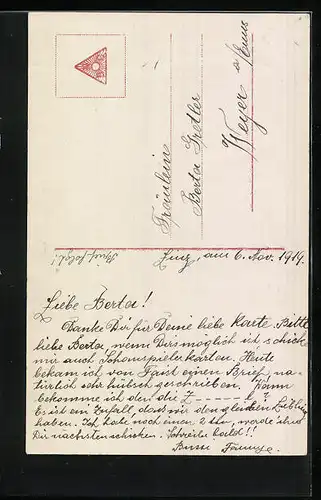 Fräulein
Berta Gretler
Weyer a/Enns
Brief folgt!
Linz, am 6. Nov. 1919.
Liebe Berta!
Danke Dir für Deine liebe Karte. Bitte
liebe Berta, wenn Dirs möglich ist, schicke
mir auch Schauspielerkarten. Heute
bekam ich von Faist einen Brief, na-
türlich sehr hübsch geschrieben. Wann
bekomme ich den die Z - - - - - l ?
Es ist ein Zufall, dass wir den gleichen Liebling
haben. Ich hate noch einen, werde ihn
Dir nächstens schicken. Schreibe bald!!
Bussi